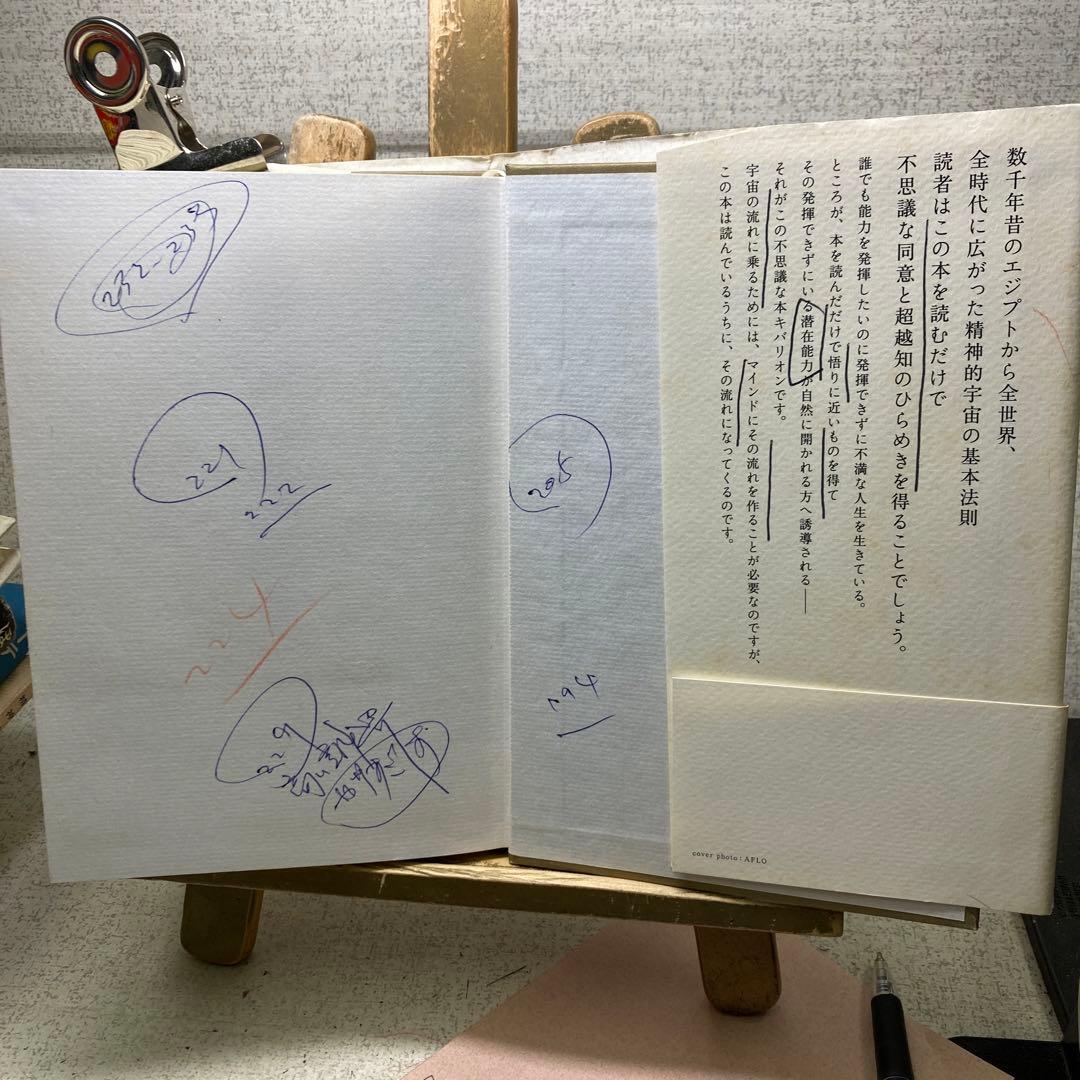 数千年昔のエジプトから全世界、
全時代に広がった精神的宇宙の基本法則
読者はこの本を読むだけで
不思議な同意と超越知のひらめきを得ることでしょう。
誰でも能力を発揮したいのに発揮できずに不満な人生を生きている。
ところが、本を読んだだけで悟りに近いものを得て
その発揮できずにいる潜在能力が自然に開かれる方へ誘導される——
それがこの不思議な本キバリオンです。
宇宙の流れに乗るためには、マインドにその流れを作ることが必要なのですが、
この本は読んでいるうちに、その流れになってくるのです。
cover photo : AFLO
205
194
221
222
224
229